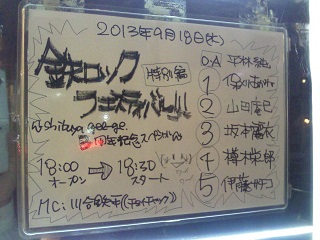 2013年9月18日(水)
鉄ロック
特別編
フェスティバル!!
@shibuya gee-ge.
周年記念スペシャル
18:00 ⇒ 18:30
オープン スタート
MC:川合鉄平
O.A 平林
1
2 山田庵巳
3 坂本麗衣
4 樽木栄一郎
5 伊藤サチコ